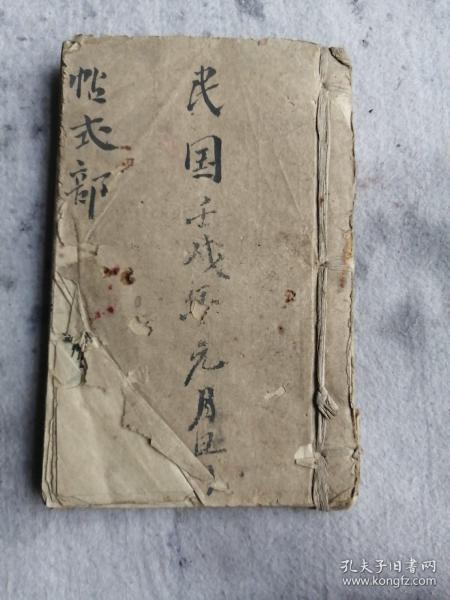 民国壬戌年元月
帖式部
孔夫子旧书网
www.kongfz.com